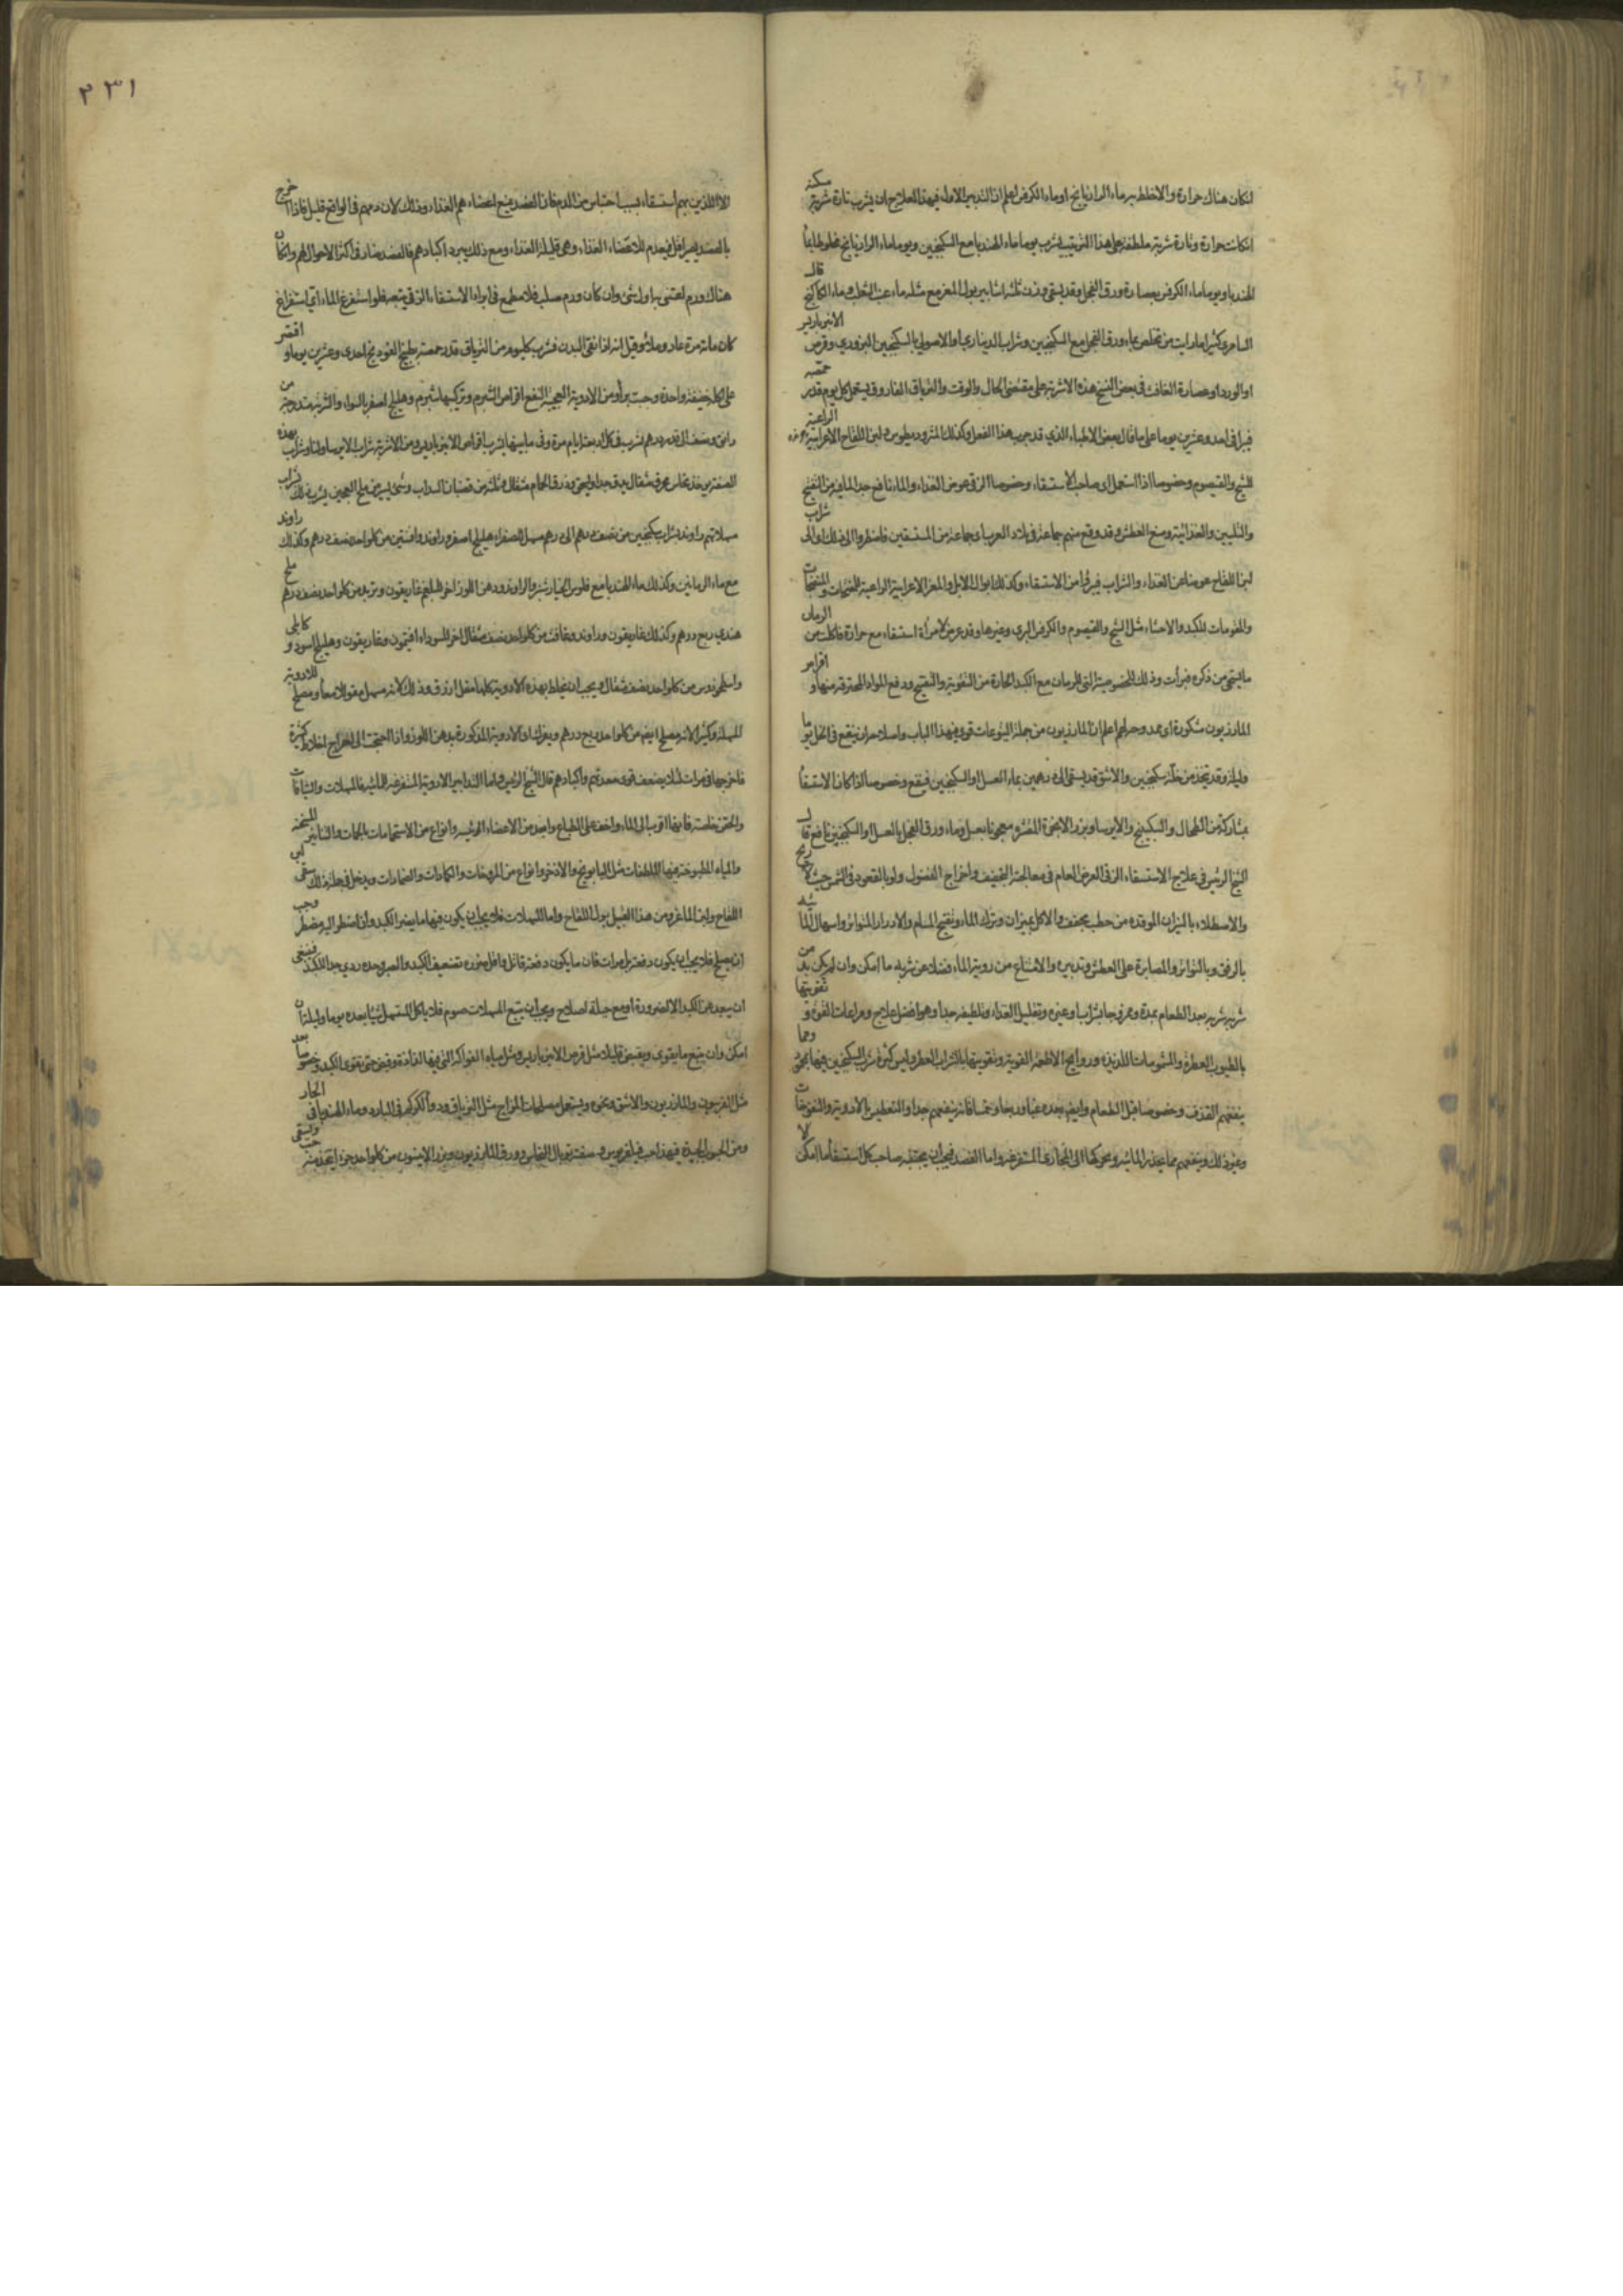 ان كان هناك حرارة والا خلط به ماء الرازيانج او ماء الكرفس اعلم ان التدبير الاولى في هذا العلاج ان يشرب تارة شربة مسكنة
ان كانت حرارة وتارة شربة ملطفة على هذا الترتيب يشرب يوما ماء الهندبا مع السكنجبين ويوما ماء الرازيانج مخلوطا بماء
الهندبا ويوما ماء الكرفس بعصارة ورق الفجل وقد يسقى وزن ثلثة اساتير بول المعز مع مثله ماء عنب الثعلب وماء الكاكنج قال
السامري كثيرا ما رايت من تخلص بماء ورق الفجل مع السكنجبين وشراب الديناري او الاصولي بالسكنجبين البزوري وقرص الانبرباريس
او الورد او عصارة الغافث في بعض النسخ هذه الاشربة على مقتضى الحال والوقت والترياق الفاروق يستعمل كل يوم قدر حمصة
فيبرا في احد وعشرين يوما على ما قال بعض الاطباء الذي قد جرب هذا الفعل وكذلك المثروديطوس ولبن اللقاح الاعرابية الراعية
للشيح والقيصوم وخصوصا اذا استعمل اى صاحب الاستسقاء وخصوصا الزقي عوض الغذاء والماء نافع جدا لما فيه من التفتيح
والتليين والغذائية ومنع العطش وقد وقع منهم جماعة في بلاد العرب اى جماعة من المستسقين فاضطروا الى ذلك اى الى شراب
لبن اللقاح عوضا عن الغذاء والشراب فبرؤا من الاستسقاء وكذلك ابوال الابل والمعز الاعرابية الراعية للمفتحات والمنضجات
والمقويات للكبد والاحشاء مثل الشيح والقيصوم والكرفس البري وغيرها وقد عرض لامرأة استسقاء مع حرارة فاكلت من الرمان
ما يستحى من ذكره فبرأت وذلك للخصوصية التى للرمان مع الكبد الحارة من التقوية والتفتيح ودفع المواد المحترقة منها واقراص
المازريون مشكورة اى محمودة اعلم ان المازريون من جملة اليتوعات قوى في هذا الباب واصلاحه ان ينقع في الخل يوما
وليلة وقد يتخذ من خله سكنجبين والاشق قد يسقى الى درهمين بماء العسل او السكنجبين فينفع وخصوصا اذا كان الاستسقاء
بمشاركة من الطحال والسكبينج والايرسا وبزر الانجرة المقشر معجونا بعسل وماء ورق الفجل بالعسل او السكنجبين نافع قال
الشيخ الرئيس في علاج الاستسقاء الزقي الغرض العام في معالجته التجفيف واخراج الفضول ولو بالقعود في الشمس حيث لا ريح
والاصطلاء بالنيران الموقدة من حطب مجفف والاكل بميزان وترك الماء وتفتيح المسام والادرار المتواتر واسهال الما
بالرفق وبالتواتر والمصابرة على العطش وتدبيره والامتناع من روية الماء فضلا عن شربه ما امكن وان لم يكن بد من
شربه شربه بعد الطعام بمدة وممزوجا بشراب او غيره وتقليل الغذاء وتلطيفه جدا وهو افضل علاج ومراعات القوى وتقويتها
بالطيوب العطرة والمشمومات اللذيذة وروايح الاطعمة القوية وتقويتها بالشراب العطر وليس كثرة شرب السكنجبين فيها بمحمود ومما
ينفعهم القذف وخصوصا قبل الطعام وايضا بعده غبا وربعا وخمسا فانه ينفعهم جدا والتعطيس بالادوية والنفوخات
وغير ذلك وينفعهم مما يحدر المائية ويحركها الى المجاري المستفرغة واما الفصد فيجب ان يجتنبه صاحب كل استسقاء ما امكن
الا الذين بهم استسقاء بسبب احتباس من الدم فان الفصد يمنع اعضاءهم الغذاء وذلك لان دمهم في الواقع قليل فاذا اخرج
بالفصد يصير اقل فيعدم للاعضاء الغذاء وهي قليلة الغذاء ومع ذلك يبرد اكبادهم فالفصد ضار في اكثر الاحوال لهم وان كان
هناك ورم اعتنى به اول شئ وان كان ورم صلب فلا مطمع في ابراء الاستسقاء الزقي يتبعه فلو استفرغ الماء اى استفراغ
كان مائة مرة عاد وملأ وقيل انه اذا نقى البدن فشرب كل يوم من الترياق قدر حمصة بطبيخ الفودنج احدى وعشرين يوما واقتصر
على اكلة خفيفة واحدة وجبت برأ ومن الادوية العجيبة النفع اقراص الشبرم وتركيبها شبرم وهليلج اصفر بالسواء والشربة متدرجة من
دانق ونصف الى قدر درهم تشرب في كل اربعة ايام مرة وفي ما بينها يشرب اقراص الانبرباريس ومن الاشربة شراب الايرسا
الصفة يوخذ نحاس محرق مثقال يدق جدا ويسحق وذرق الحمام مثقال وثلثة من قضبان السداب وشئ يسير من ملح العجين يشرب ذلك بشراب
مسهلاتهم راوند بشراب سكنجبين من نصف درهم الى درهم مسهل للصفراء هليلج اصفر وراوند وافسنتين من كل واحد نصف درهم وكذلك راوند
مع ماء الرمانين وكذلك ماء الهندبا مع فلوس الخيار شنبر والراوند ودهن اللوز اخر للبلغم غاريقون وتربد من كل واحد نصف درهم ملح
هندي ربع درهم وكذلك غاريقون وراوند وغافث من كل واحد نصف مثقال اخر للسوداء افتيمون وغاريقون وهليلج اسود وكابلى
واسطوخودس من كل واحد نصف مثقال ويجب ان يخلط بهذه الادوية كلها مقل ازرق وذلك لانه مسهل مقو للامعاء ومصلح للادوية
المسهلة وكثيرا لانه مصلح ايضا من كل واحد ربع درهم ويغزله اى الادوية المذكورة بدهن اللوز واذا احتيجت الى اخراج اخلاط كثيرة
فاخرجها في مرات لئلا يضعف قوى معدتهم واكبادهم قال الشيخ الرئيس واما التدابير الادوية المستفرغة للمائية فالمسهلات والشيافات
والحقن خاصة فانها اقرب الى الماء واخف على الطباع وابعد من الاعضاء الرئيسة وانواع من الاستحمامات بالحمات والتنانير المسخنة
والمياه المطبوخة فيها الملطفات مثل البابونج والاذخر وانواع من المروخات والكمادات والضمادات ويدخل في جملة ذلك سقى لبن
اللقاح ولبن الماعز ومن هذا القبيل بول اللقاح واما المسهلات فلا يجب ان يكون فيها ما يضر الكبد وان اضطر اليه مضطر وجب
ان يصلح فلا يجب ان يكون دفعة بل مرات فان ما يكون دفعة قاتل واقل ضرره تضعيف الكبد والصبر وحده ردي جدا للكبد فينبغى
ان يبعد عن الكبد الا لضرورة او مع حيلة اصلاح ويجب ان يتبع المسهلات صوم فلا ياكل المستسهل شيئا بعده يوما وليلة ان
امكن وان يتبع ما يقوى ويقبض قليلا مثل قرص الانبرباريس ومثل مياه الفواكه التى فيها لذاذة وقبض حتى تقوى الكبد وخصوصا بعد
مثل الفربيون والمازريون والاشق ونحوه ويستعمل مصلحات المزاج مثل الترياق ودواء الكركم في البارد وماء الهندبا في الحار
ومن الحبوب الجيدة فيه هذا حب فيلغريوس وصفته توبال النحاس وورق المازريون وبزر الانيسون من كل واحد جزء يتخذ منه حب ويسقى
٢٣١